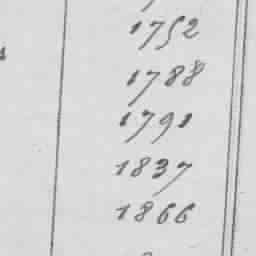 1752
1788
1791
1837
1866